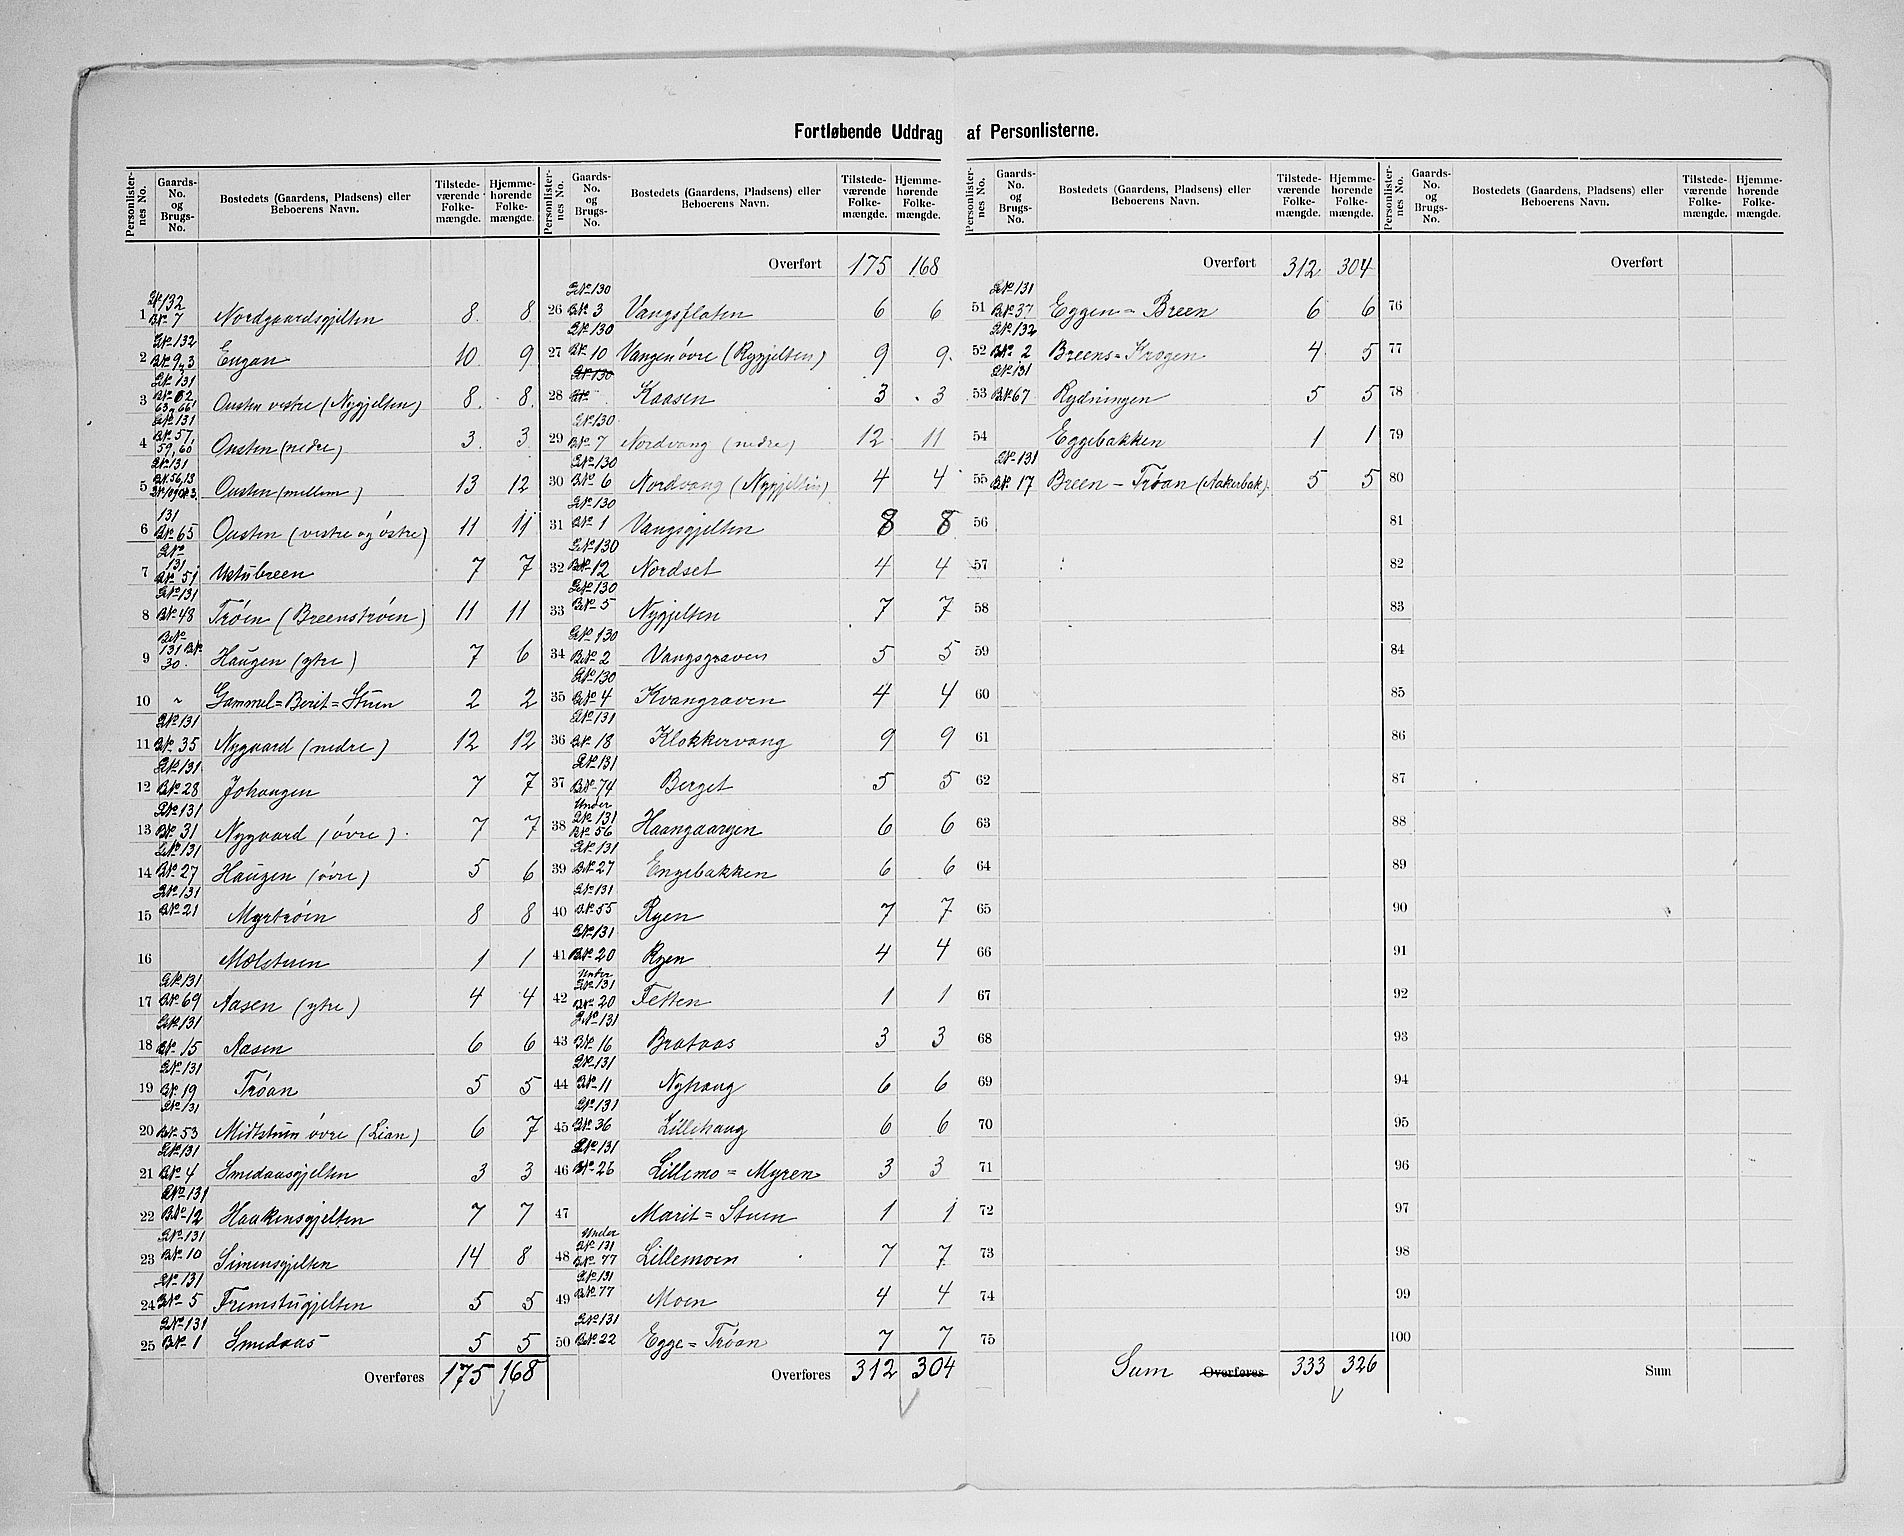 Fortløbende Uddrag af Personlisterne.
Personlister-nes No. Gaards-No. og Brugs-No. Bostedets (Gaardens, Pladsens) eller Beboerens Navn. Tilstede-værende Folke-mængde. Hjemme-hørende Folke-mængde.
1 GNo 132 BNo 7 Nordgaardsgjelten 8 8
2 GNo 132 BNo 9, 3 Engan 10 9
3 GNo 131 BNo 62 63, 66 Ousten vestre (Nygjelten) 8 8
4 GNo 131 BNo 57, 59, 60 Ousten (nedre) 3 3
5 GNo 131 BNo 56, 13 Ousten (mellem) 13 12
6 131 BNo 65 Ousten (vestre og östre) 11 11
7 GNo 131 BNo 51 Ustubreen 7 7
8 GNo 131 BNo 48 Trøen (Breenstrøen) 11 11
9 GNo 131 BNo 30. Haugen (ytre) 7 6
10 " Gammel=Berit=Stuen 2 2
11 GNo 131 BNo 35 Nygaard (nedre) 12 12
12 GNo 131 BNo 28 Johaugen 7 7
13 GNo 131 BNo 31 Nygaard (øvre). 7 7
14 GNo 131 BNo 27 Haugen (øvre) 5 6
15 GNo 131 BNo 21 Myrtrøen 8 8
16 Mælsturen 1 1
17 GNo 131 BNo 69 Aasen (ytre) 4 4
18 GNo 131 BNo 15 Aasen 6 6
19 GNo 131 BNo 19 Trøan 5 5
20 GNo 131 BNo 53 Midtstuen øvre (Lian) 6 7
21 GNo 131 BNo 4 Smedaasgjelten 3 3
22 GNo 131 BNo 12 Haakensgjelten 7 7
23 GNo 131 BNo 10 Simensgjelten 14 8
24 GNo 131 BNo 5 Fremstugjelten 5 5
25 GNo 131 BNo 1 Smedaas 5 5
Overføres 175 168
Personlister-nes No. Gaards-No. og Brugs-No. Bostedets (Gaardens, Pladsens) eller Beboerens Navn. Tilstede-værende Folke-mængde. Hjemme-hørende Folke-mængde.
Overført 175 168
26 GNo 130 BNo 3 Vangsflaten 6 6
27 GNo 130 BNo 10 Vangen øvre (Rygjelten) 9 9.
28 GNo 130 BNo Kaasen 3 3
29 GNo 130 BNo 7 Nordvang (nedre) 12 11
30 GNo 130 BNo 6 Nordvang (Nygjelten) 4 4
31 GNo 130 BNo 1 Vangsgjelten 8 8
32 GNo 130 BNo 12 Nordset 4 4
33 GNo 130 BNo 5 Nygjelten 7 7
34 GNo 130 BNo 2 Vangsgraven 5 5
35 GNo 130 BNo 4 Kvangraven 4 4
36 GNo 131 BNo 18 Klokkervang 9 9
37 GNo 131 BNo 74 Berget 5 5
38 Under GNo 131 BNo 56 Haangaargen 6 6
39 GNo 131 BNo 27 Engebakken 6 6
40 GNo 131 BNo 55 Ryen 7 7
41 GNo 131 BNo 20 Ryen 4 4
42 Under GNo 131 BNo 20 Tetten 1 1
43 GNo 131 BNo 16 Brataas 3 3
44 GNo 131 BNo 11 Nyhaug 6 6
45 GNo 131 BNo 36 Lillehaug 6 6
46 GNo 131 BNo 26 Lillemo=Myren 3 3
47 Marit=Stuen 1 1
48 Under GNo 131 BNo 77 Lillemoen 7 7
49 GNo 131 BNo 77 Moen 4 4
50 GNo 131 BNo 22 Egge=Trøan 7 7
Overføres 312 304
Personlister-nes No. Gaards-No. og Brugs-No. Bostedets (Gaardens, Pladsens) eller Beboerens Navn. Tilstede-værende Folke-mængde. Hjemme-hørende Folke-mængde.
Overført 312 304
51 GNo 131 BNo 37 Eggen=Breen 6 6
52 GNo 132 BNo 2 Breens=Krogen 4 5
53 GNo 131 BNo 67 Rydningen 5 5
54 Eggebakken 1 1
55 GNo 131 BNo 17 Breen-Trøan (Aakerbak) 5 5
56
57
58
59
60
61
62
63
64
65
66
67
68
69
70
71
72
73
74
75
Sum Overføres 333 326
Personlister-nes No. Gaards-No. og Brugs-No. Bostedets (Gaardens, Pladsens) eller Beboerens Navn. Tilstede-værende Folke-mængde. Hjemme-hørende Folke-mængde.
Overført
76
77
78
79
80
81
82
83
84
85
86
87
88
89
90
91
92
93
94
95
96
97
98
99
100
Sum